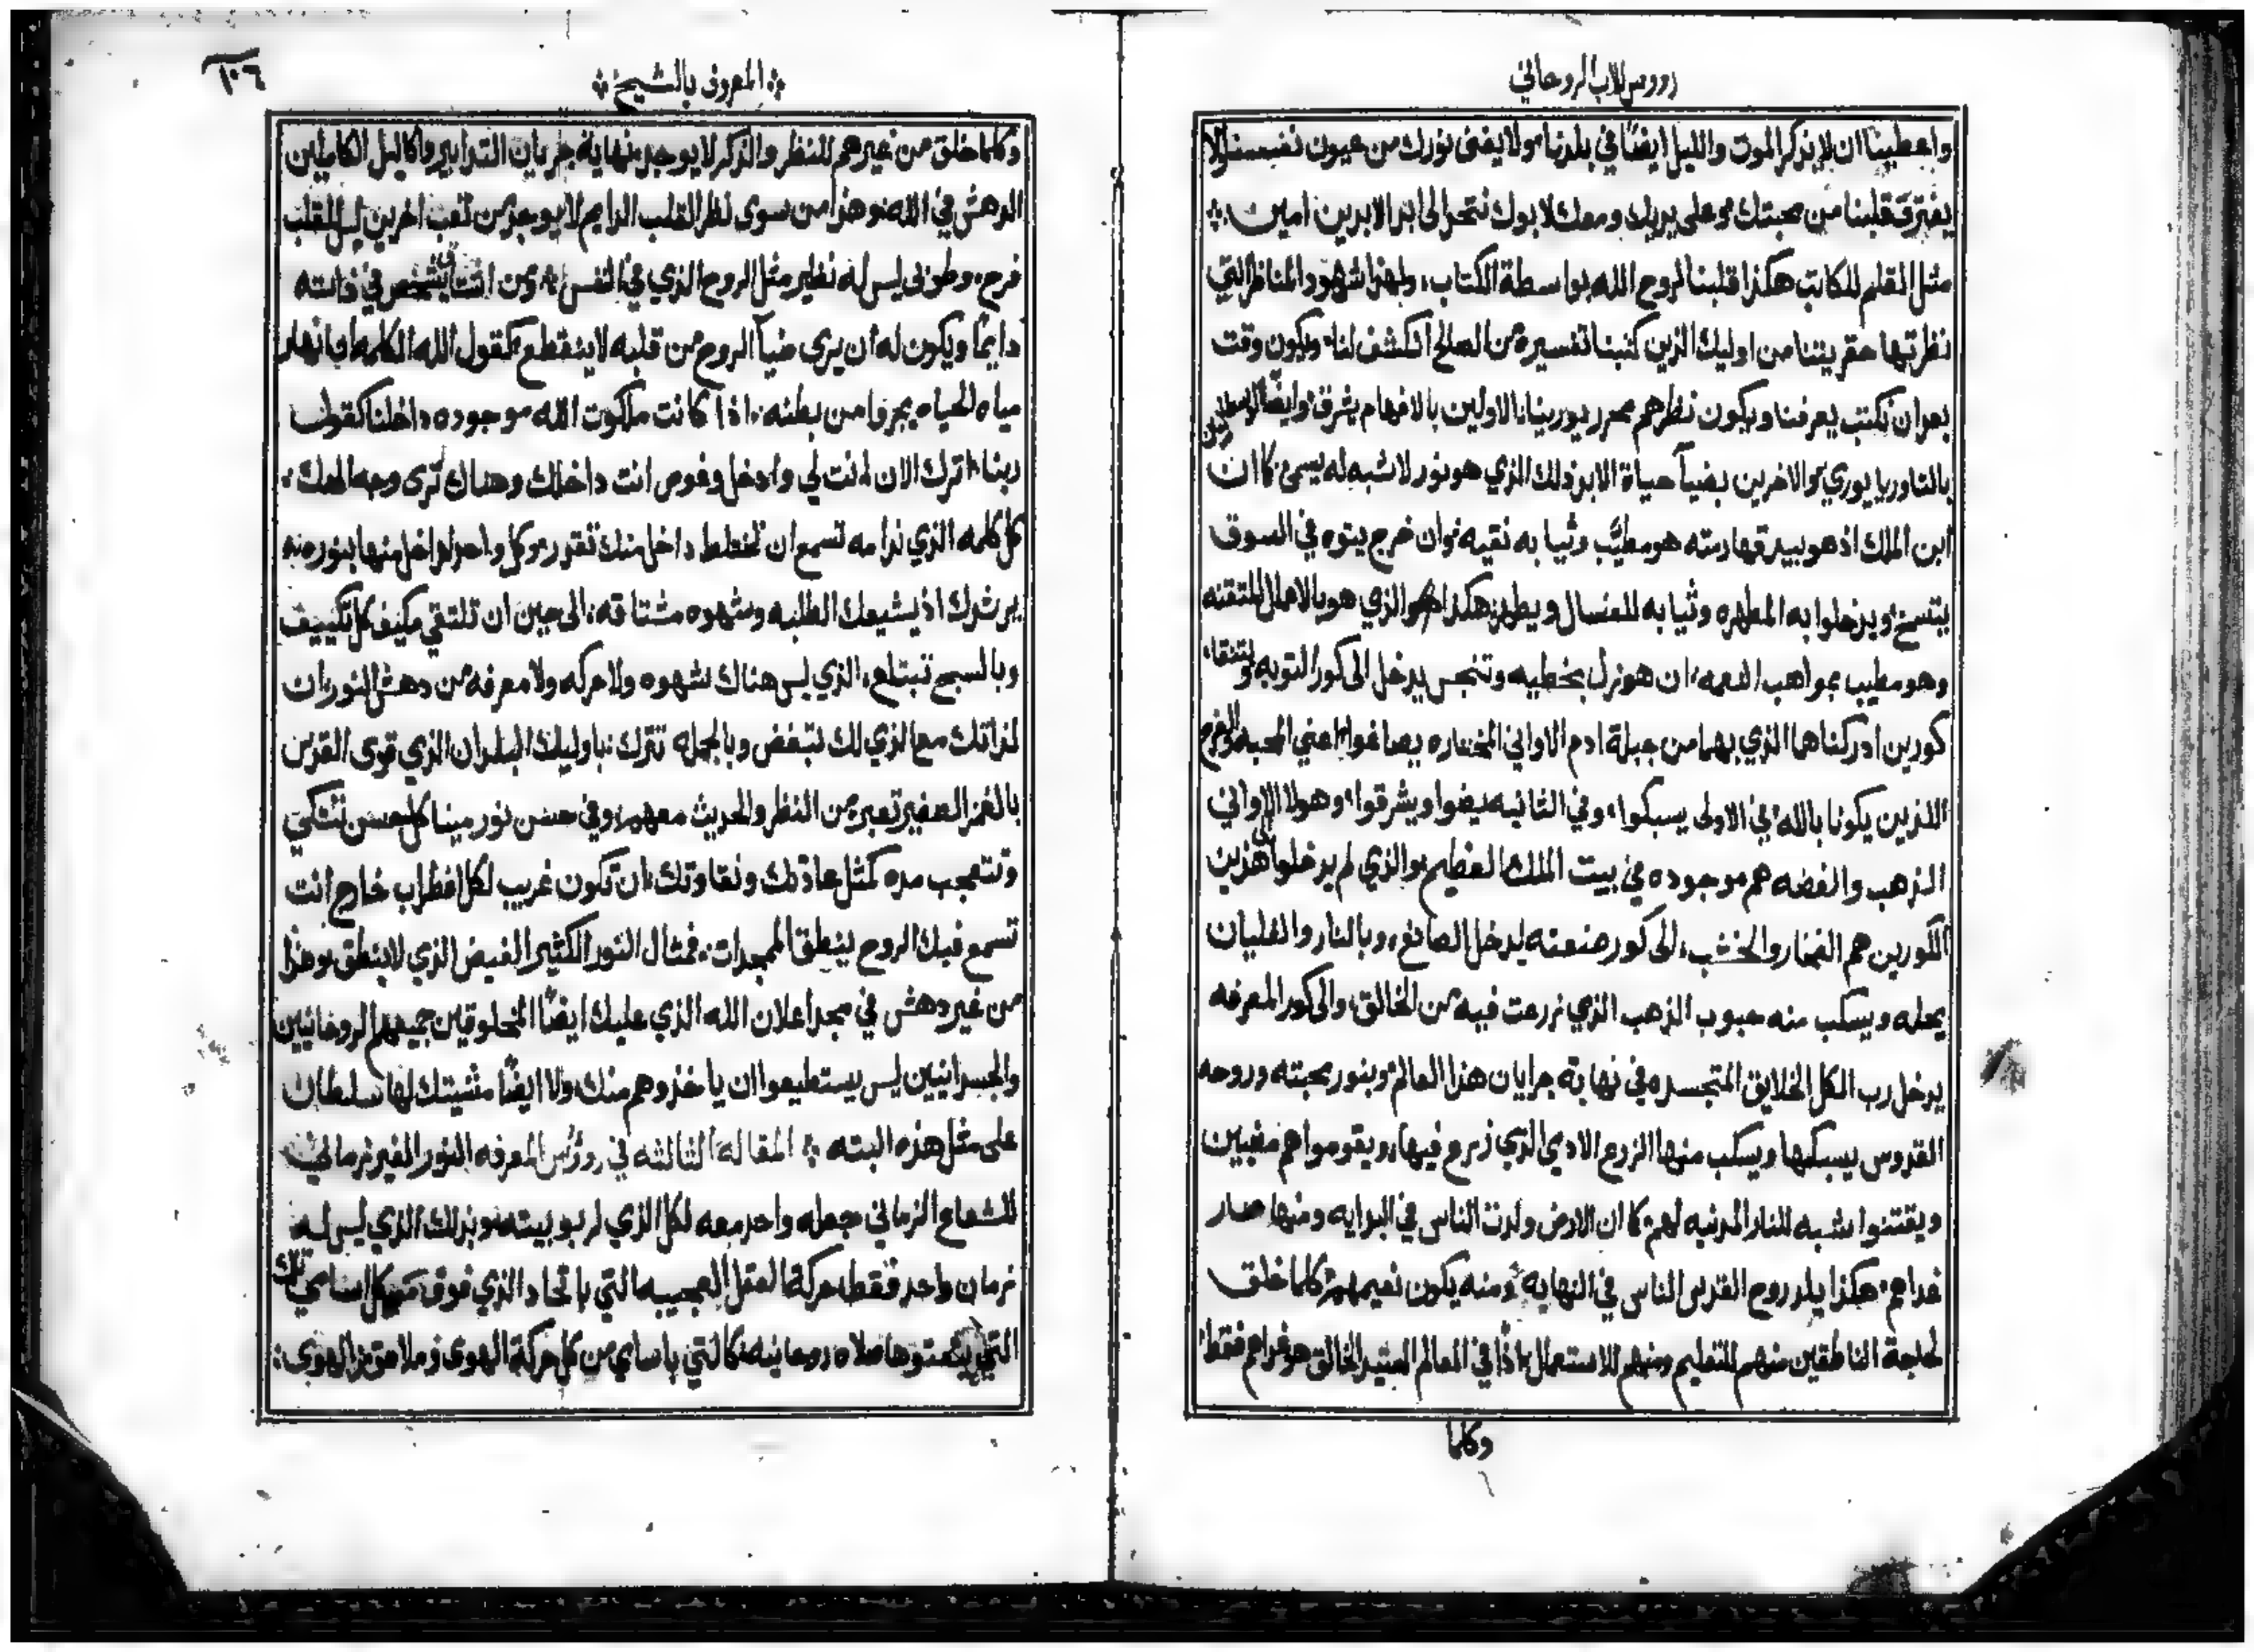 رووس للاب الروحاني
واعطينا ان لا يذكر الموت والليل ايضًا في بلدنا ولا يفنى نورك من عيون نفسنا ولا
يفترق قلبنا من محبتك وعلى يديك ومعك لابوك نتحد الى ابد الابدين امين
مثل القلم للكاتب هكذا قلبنا لروح الله بواسطة الكتاب ولهذا شهود المناظر التي
نظرتها حقريتنا من اوليك الذين كتبنا تفسيره من الصالح انكشف لنا ويكون وقت
بعد ان نكتب يعرفنا ويكون نظرهم محرر يورينا الاولين بالافهام يشرق وايضًا
بالتاوريا يوري والاخرين بضيآ حياة الابد ذلك الذي هو نور لا شبه له يسمى كما ان
ابن الملك اذ هو بيدقهارمته هو مطيّب وثيابه نقيه وان خرج يتوه في السوق
يتسخ ويدخلوا به المطهره وثيابه للغسال ويطهر هكذا هو الذي هو بالاعمال المتقنه
وهو مطيب بمواهب النعمه ان هو نزل بخطيه وتنجس يدخل الى كور التوبه ويتنقا
كورين ادركناها الذي بهما من جبلة ادم الاواني المختاره يصاغوا اعني المحبه والفرح
اللذين يكونا بالله في الاولى يسبكوا وفي الثانيه يضوا ويشرقوا وهولا الاواني
الذهب والفضه هم موجوده في بيت الملك العظيم والذي لم يدخلوا الى هذين
الكورين هم الفخار والخشب الى كور صنعته يدخل الصايغ وبالنار والغليان
يحله ويسكب منه حبوب الذهب الذي زرعت فيه من الخالق والى كور المعرفه
يدخل رب الكل الخلايق المتجسده في نهاية جرايان هذا العالم وبنور محبته وروحه
القدوس يسبكها ويسكب منها الزرع الادمي الذي زرع فيها ويقوموا هم مضيين
ويقتنوا شبه للنار المدنيه لهم كما ان الارض ولدت الناس في البدايه ومنها صار
غداهم هكذا يلد روح القدس الناس في النهايه ومنه يكون نعيمهم كلما خلق
لحاجة الناطقين منهم للتعليم ومنهم للاستعمال اذًا في العالم العتيد الخالق هو غداهم فقط
وكلما
المعروف بالشيخ
١٠٦
وكلما خلق من غيرهم للنظر والذكر لا يوجد نهاية جريان التدابير واكاليل الكاملين
الدهش في الله وهذا من سوى نظر القلب الدايم لا يوجد من تعب اخرين ليس للقلب
فرح وطوبى ليس له نظير مثل الروح الذي في النفس ومن انت تشخص في ذاته
دايمًا ويكون له ان يرى ضيآ الروح من قلبه لا ينقطع كقول الله الكلمه ان انهار
مياه الحياه يجروا من بطنه اذا كانت ملكوت الله موجوده داخلنا كقول
ربنا اترك الان لانت لي وادخل وغوص انت داخلك وهناك ترى وجه الملك
كل كلمه الذي برامه تسمع ان تختلط داخل منك تقدر وكل واحد داخل منها بنور منه
يرشدك اذ يشيعك الطلبه وشهوه مشتاقه الى حين ان تلتقي مكيف كل تكييف
وبالسبح تبتلع الذي ليس هناك شهوه ولا حركه ولا معرفه من دهش النور ان
لذاتك مع الذي لك تبغض وبالجمله تترك باوليك البلدان الذي قوى القدس
بالغمز الصغير تعبر من النظر والحديث معهم وفي حضن نور مينا كل حسن تتكي
وتتعجب مده كمثل عادتك ونقاوتك ان تكون غريب لكل اضطراب خارج انت
تسمع فيك الروح ينطق الممجدات فمثال النور الكثير الفيض الذي لا ينطق وهذا
من غير دهش في مجد اعلان الله الذي عليك ايضًا المخلوقين جميعهم الروحانيين
والجسدانيين ليس يستطيعوا ان ياخذوهم منك ولا ايضًا مشيتك لها سلطان
على مثل هذه البته المقاله الثالثه في رووس المعرفه النور الغير زماني
للشعاع الزماني جعله واحد معه لكل الذي لربوبيته وبذلك الذي ليس له
زمان واحد فقط حركة العقل العجيبه التي باتحاد الذي فوق كل اسامي تلك
التي صلاه روحانيه كالتي باساي من كل حركة الهوى وملاحق الهوى